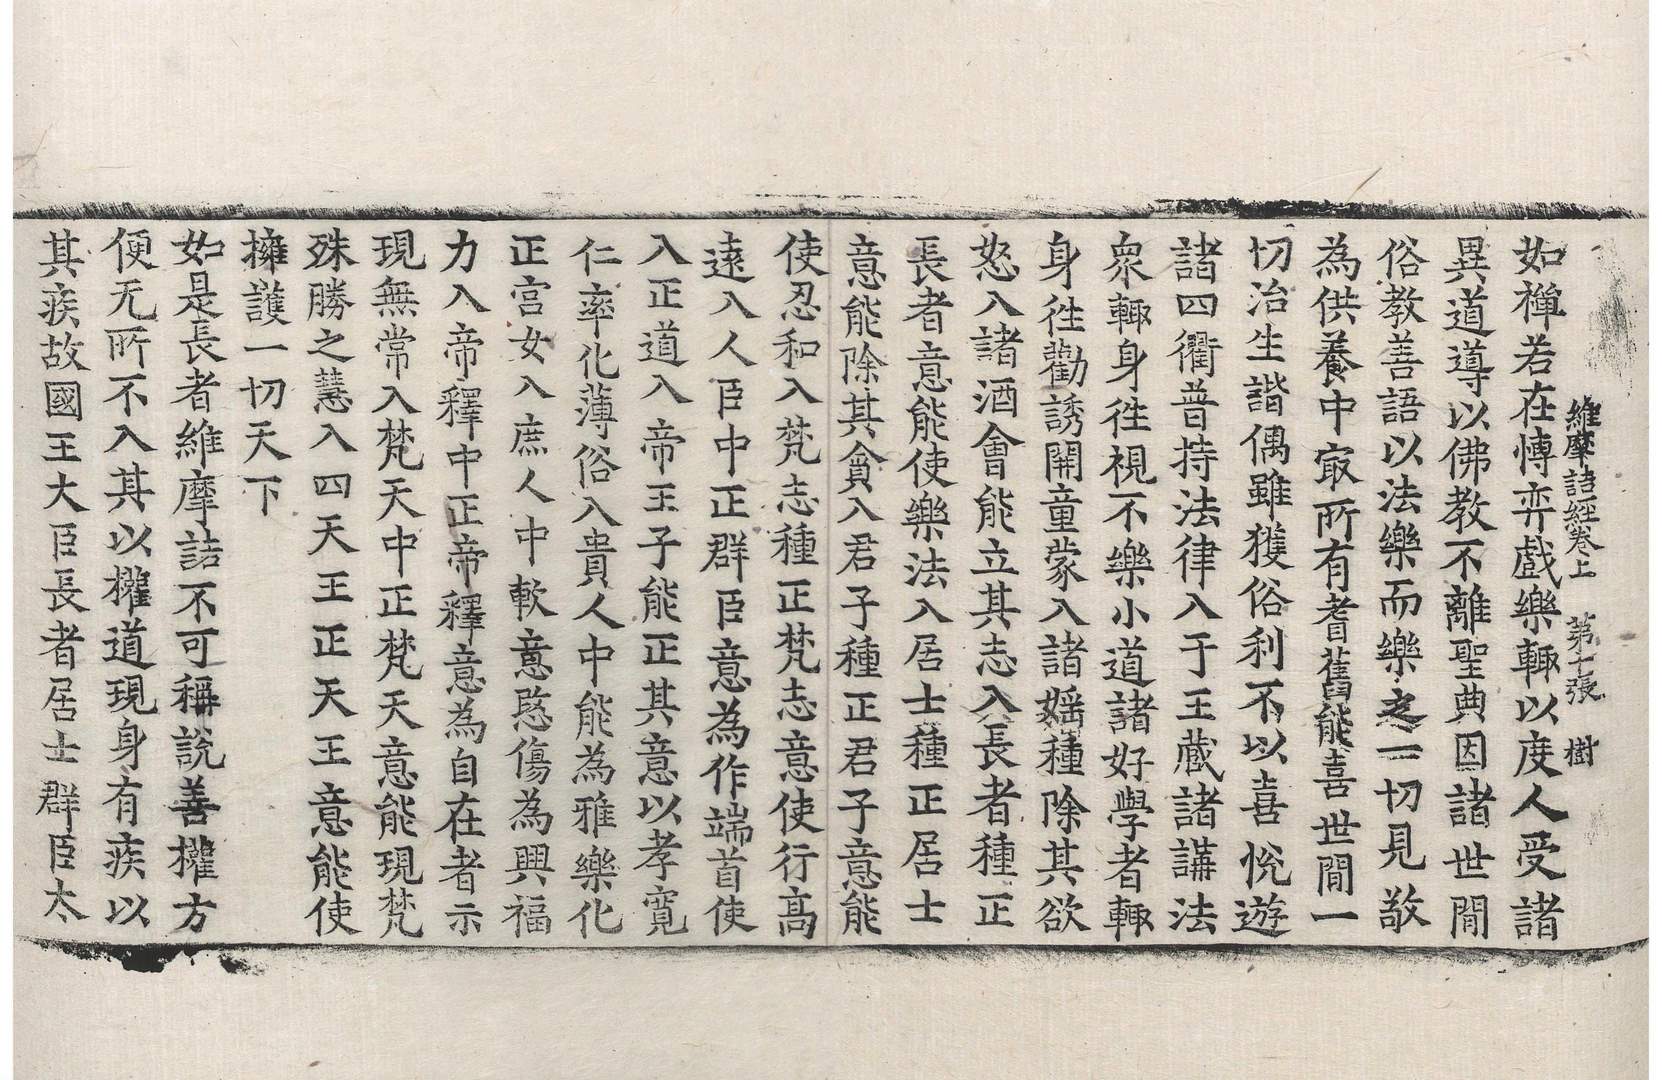 維摩詰經卷上 第七張 樹
如禪若在愽弈戲樂輙以度人受諸
異道導以佛教不離聖典因諸世閒
俗教善語以法樂而樂之一切見敬
為供養中㝡所有耆舊能喜世閒一
切治生諧偶雖獲俗利不以喜恱遊
諸四衢普持法律入于王蔵諸講法
衆輙身徃視不樂小道諸好學者輙
身徃勸誘開童蒙入諸婬種除其欲
怒入諸酒會能立其志入長者種正
長者意能使樂法入居士種正居士
意能除其貪入君子種正君子意能
使忍和入梵志種正梵志意使行高
遠入人臣中正群臣意為作端首使
入正道入帝王子能正其意以孝寬
仁率化薄俗入貴人中能為雅樂化
正宮女入庶人中軟意愍傷為興福
力入帝釋中正帝釋意為自在者示
現無常入梵天中正梵天意能現梵
殊勝之慧入四天王正天王意能使
擁護一切天下
如是長者維摩詰不可稱說善權方
便无所不入其以權道現身有疾以
其疾故國王大臣長者居士群臣太